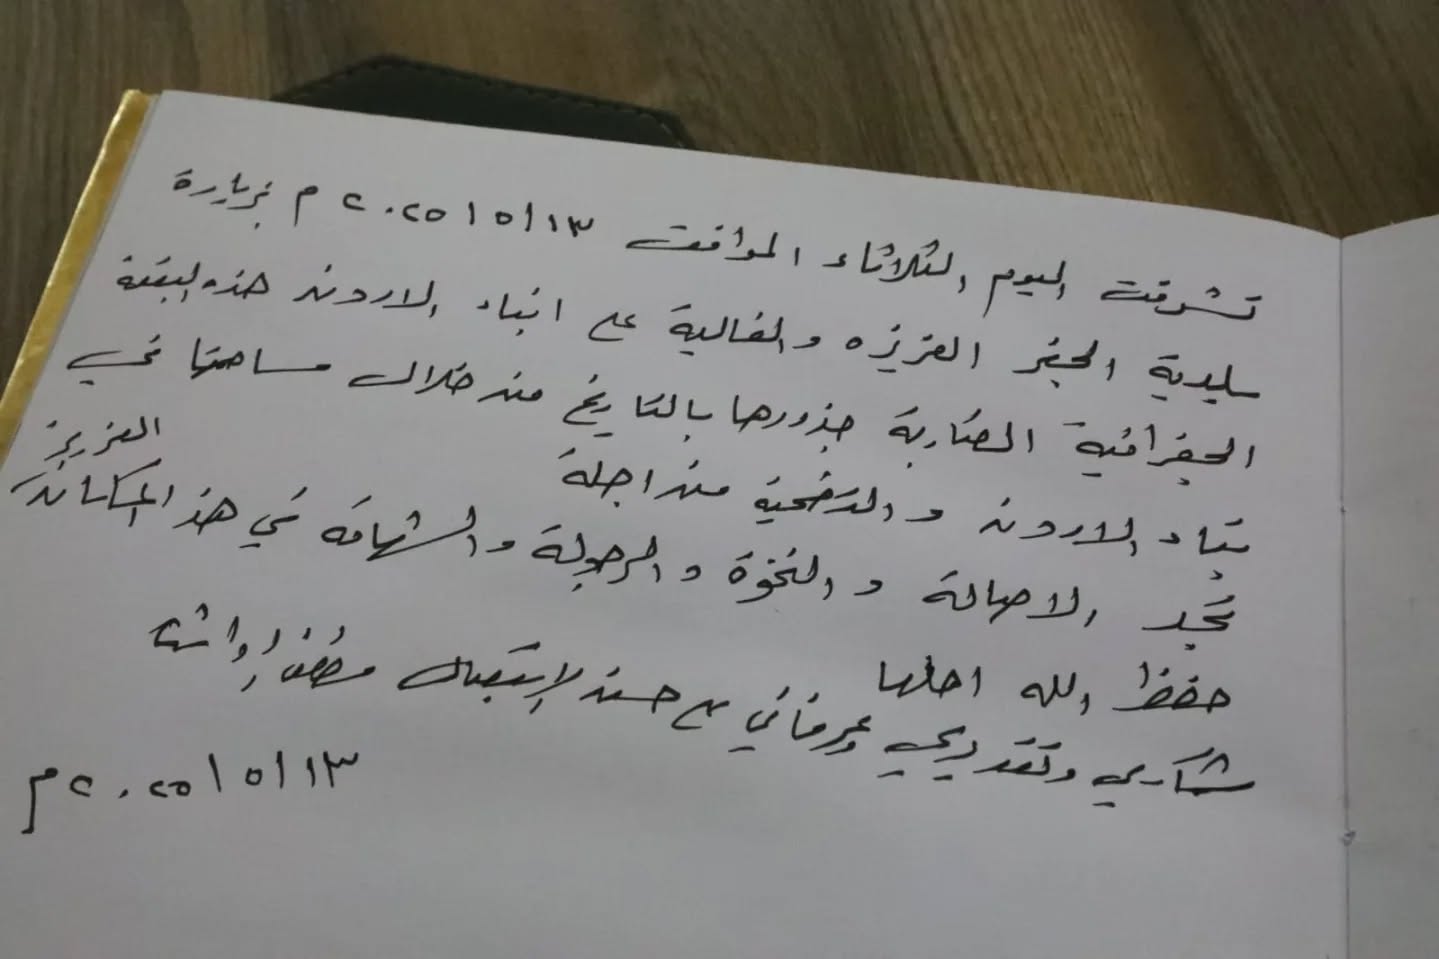 تشرفت اليوم الثلاثاء الموافق ١٣/٥/٢٠٢٥ م بزيارة
بلدية الجفر العزيزه والغالية على ابناء الاردن هذه البقعة
الجغرافية الضاربة جذورها بالتاريخ من خلال مساهمتها في
بناء الاردن والتضحية من اجلة
نجد الاصالة والنخوة والرجولة والشهامة في هذا المكان العزيز
حفظ الله اهلها
شكري وتقديري وعرفاني على حسن الاستقبال
١٣/٥/٢٠٢٥ م